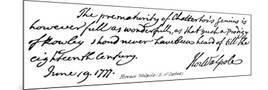 The prematurity of Chatterton's genius is
however full as wonderfull, as that such a prodigy
of Rowley should never have been heard of till the
eighteenth century.
June 19. 1777.
Hor. Walpole
Horace Walpole